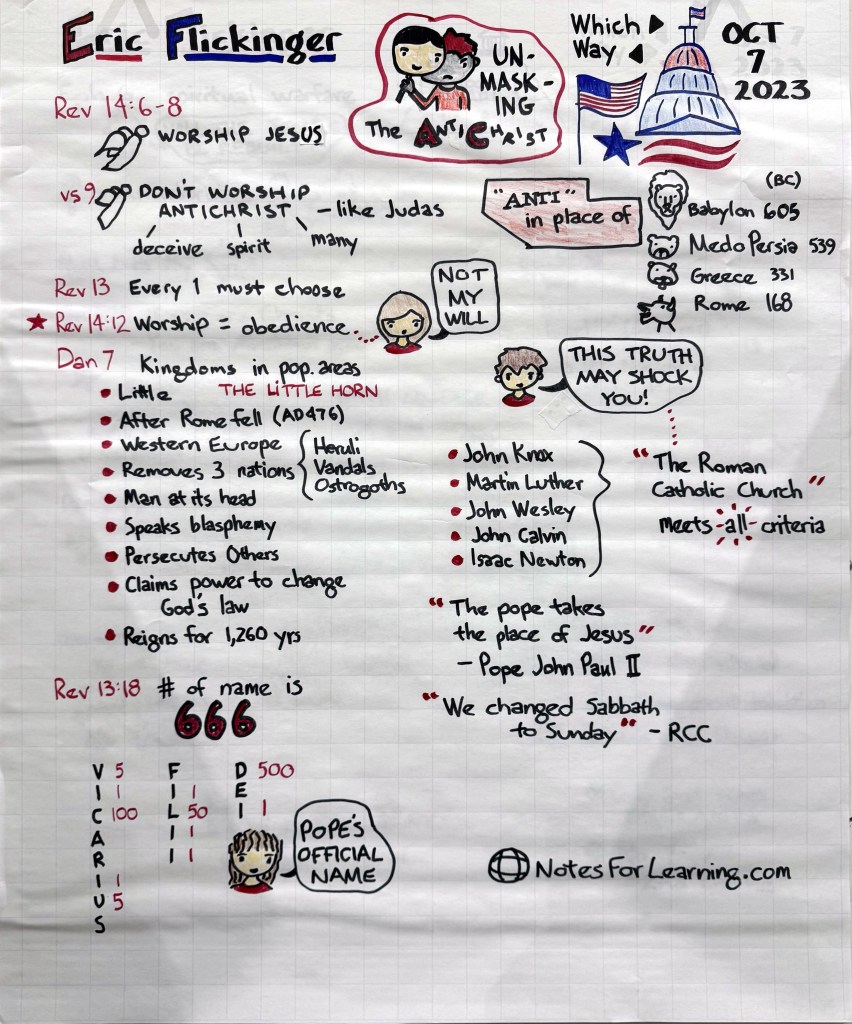 Eric Flickinger
UN-
MASK-
ING
The ANTICHRIST
Which
Way
OCT
7
2023
Rev 14:6-8
WORSHIP JESUS
vs 9 DON'T WORSHIP
ANTICHRIST - like Judas
deceive spirit many
"ANTI"
in place of
(BC)
Babylon 605
MedoPersia 539
Greece 331
Rome 168
Rev 13 Every 1 must choose
Rev 14:12 Worship = obedience
NOT
MY
WILL
Dan 7 Kingdoms in pop. areas
• Little THE LITTLE HORN
• After Rome fell (AD476)
• Western Europe
• Removes 3 nations
Heruli
Vandals
Ostrogoths
• Man at its head
• Speaks blasphemy
• Persecutes Others
• Claims power to change
God's law
• Reigns for 1,260 yrs
THIS TRUTH
MAY SHOCK
YOU!
• John Knox
• Martin Luther
• John Wesley
• John Calvin
• Isaac Newton
"The Roman
Catholic Church"
meets -all- criteria
"The pope takes
the place of Jesus"
- Pope John Paul II
"We changed Sabbath
to Sunday" - RCC
Rev 13:18 # of name is
666
V 5
I 1
C 100
A
R
I 1
U 5
S
F
I 1
L 50
I 1
I 1
D 500
E
I 1
POPE'S
OFFICIAL
NAME
NotesForLearning.com